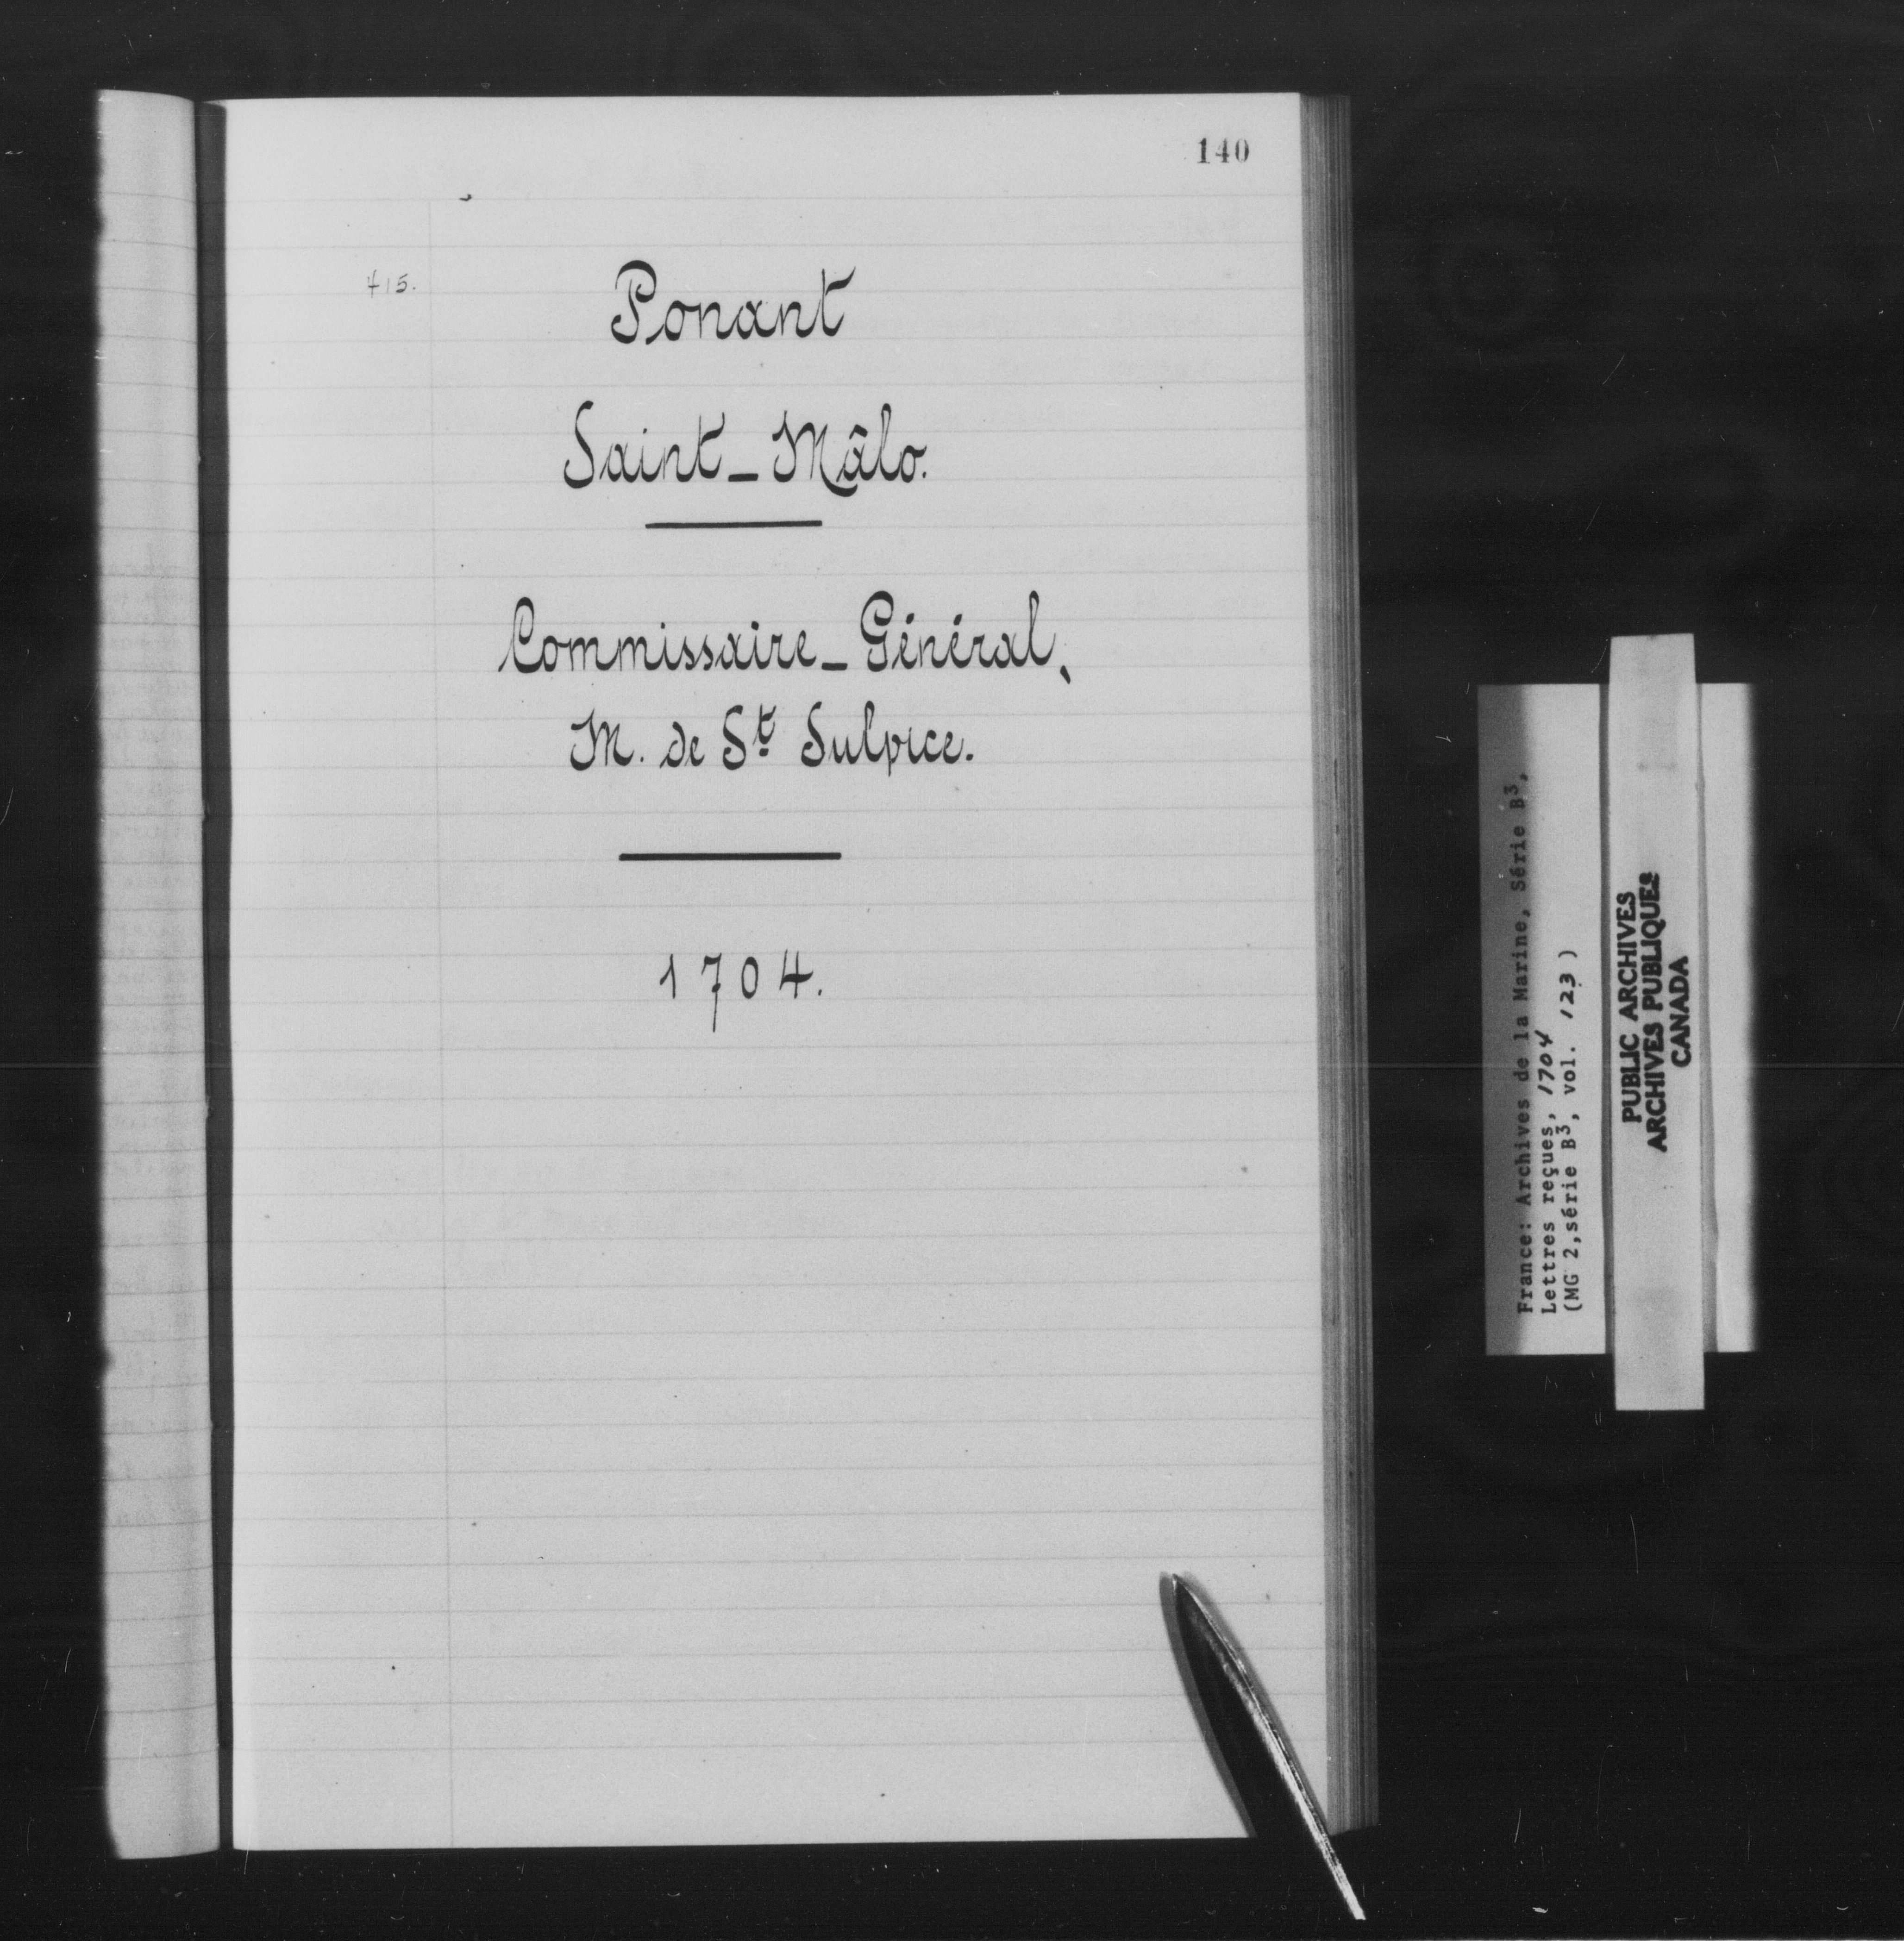 140
415.
Ponant
Saint-Mâlo.
Commissaire-Général,
M. de St Sulpice.
1704.
France: Archives de la Marine, Série B3,
Lettres reçues, 1704
(MG 2,série B3, vol. 123)
PUBLIC ARCHIVES
ARCHIVES PUBLIQUES
CANADA